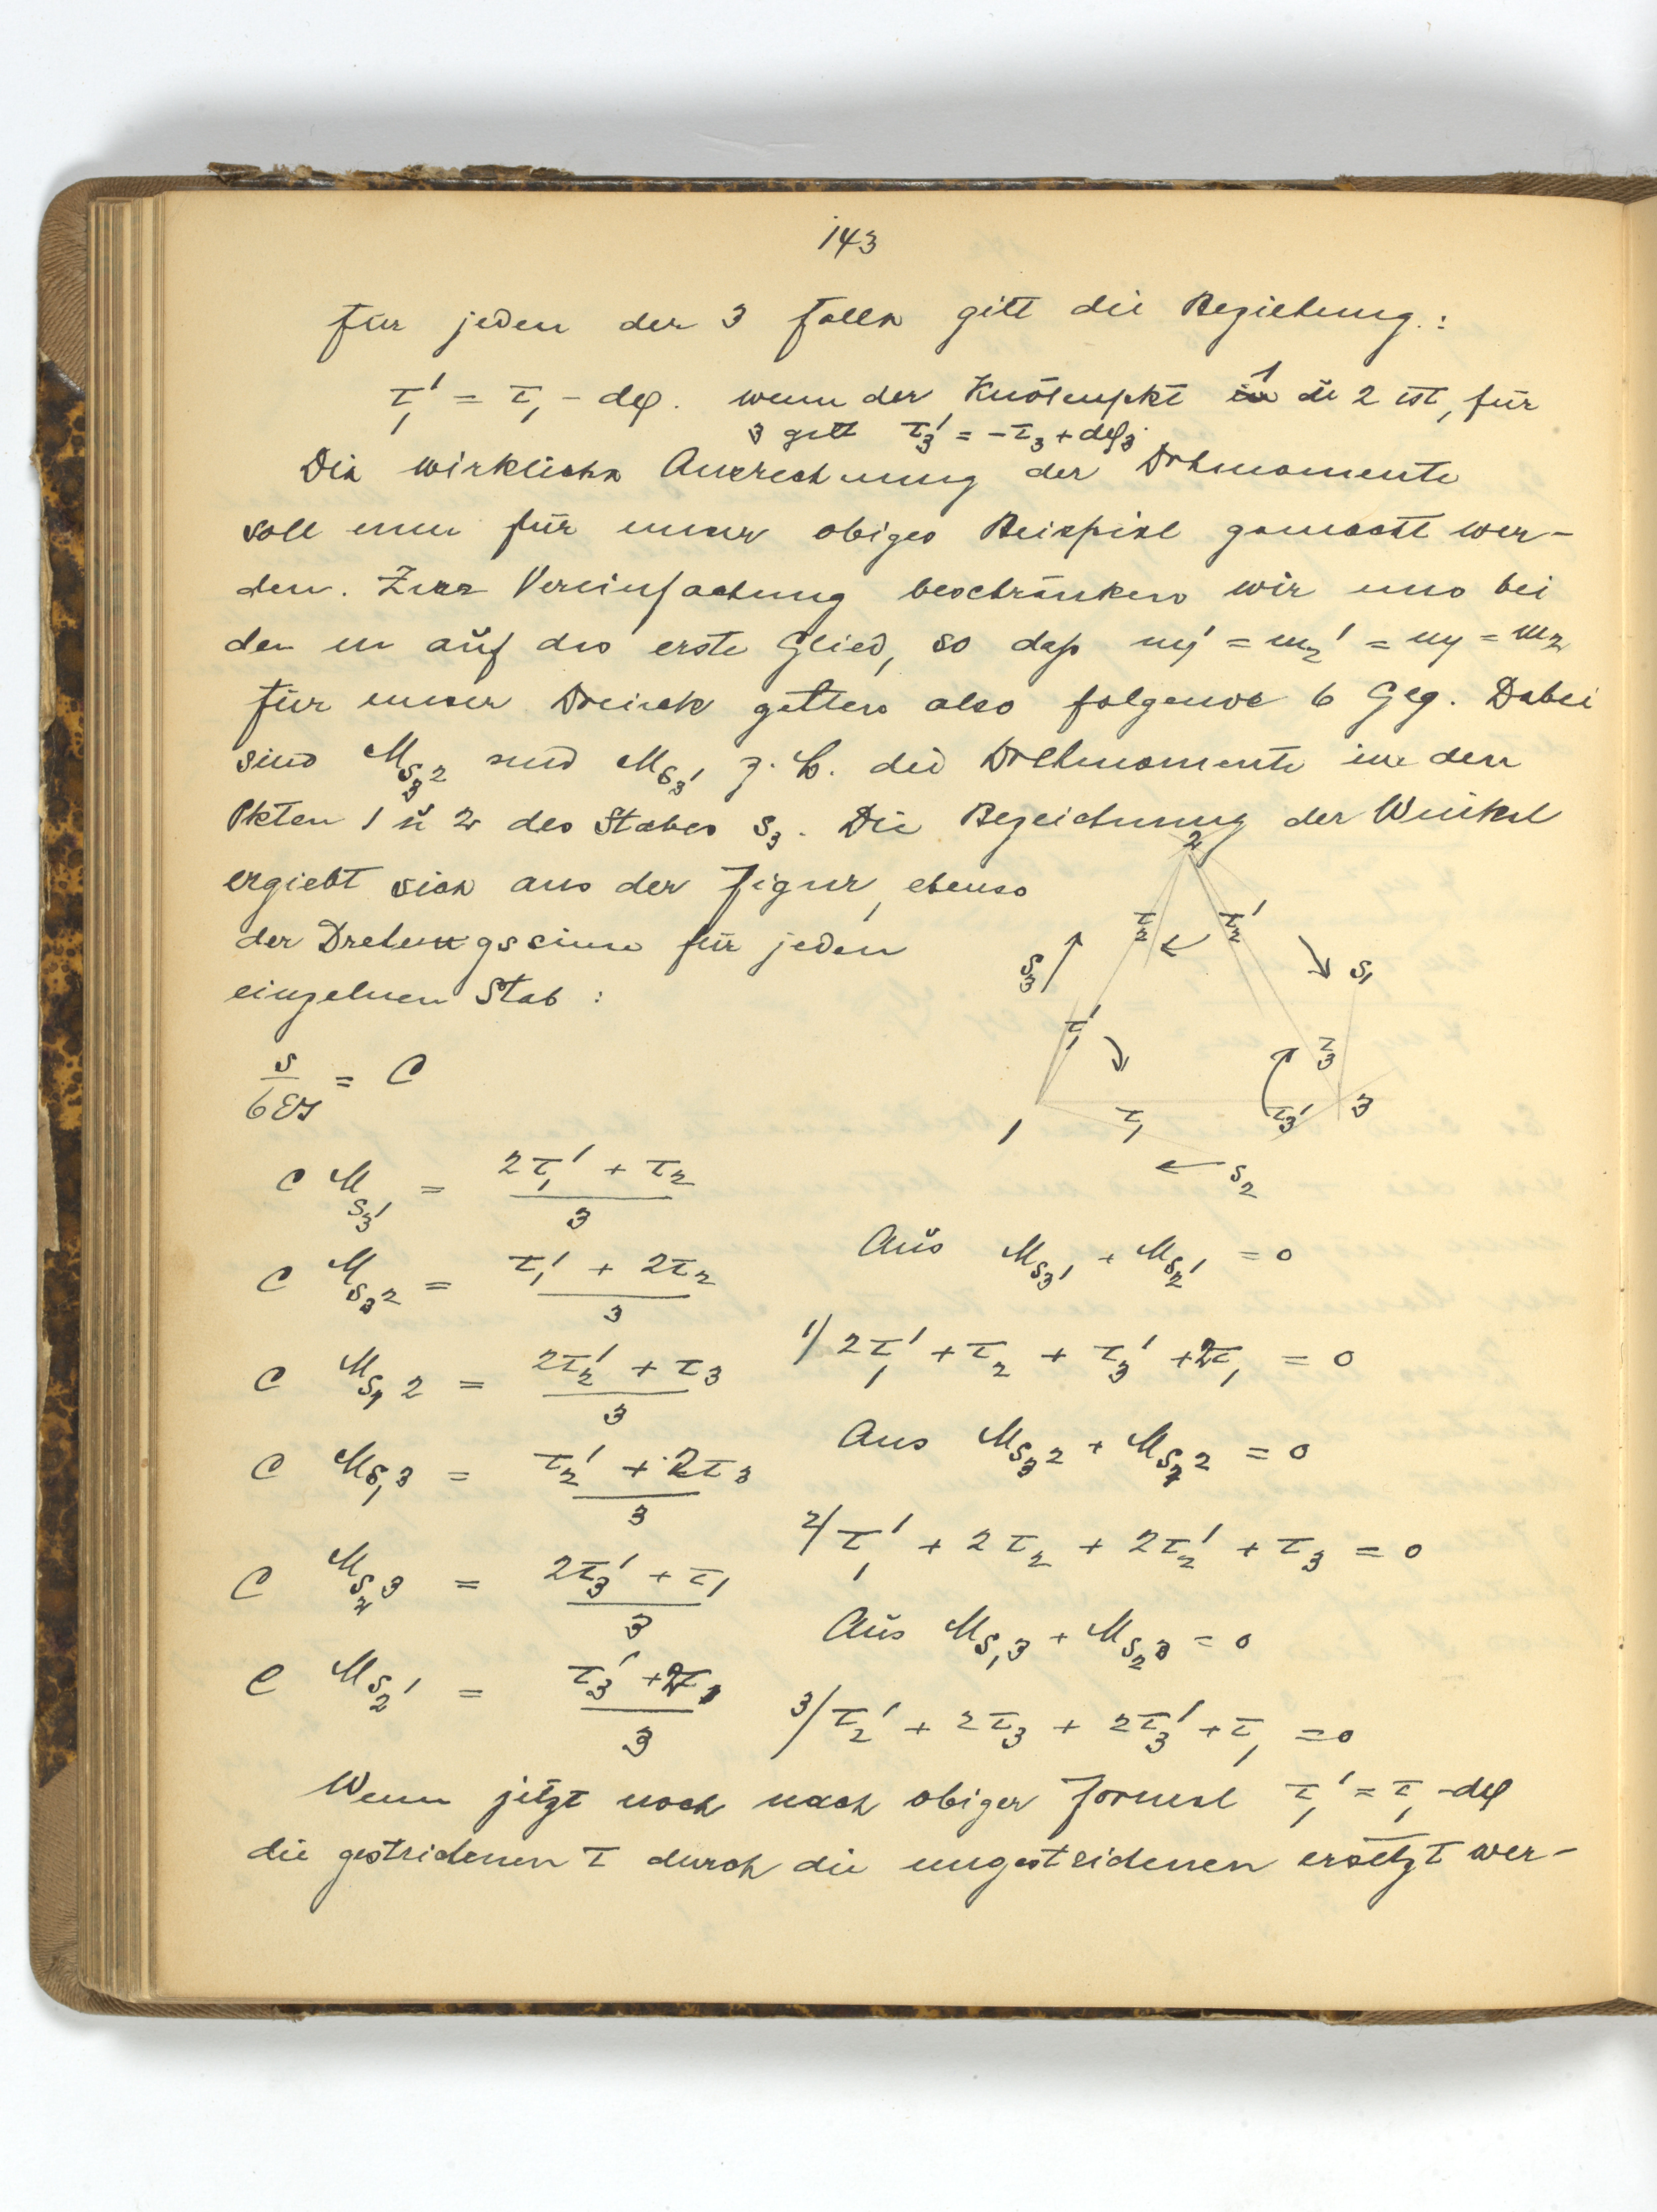 143
für jeden der 3 Fälle gilt die Beziehung.:
τ₁' = τ₁ - dφ. wenn der Knotenpkt 1 ü 2 ist, für
3 gilt τ₃' = -τ₃ + dφ₃.
Die wirkliche Ausrechnung der Drhmomente
soll nun für unser obiges Beispiel gemacht wer-
den. Zur Vereinfachung beschränken wir uns bei
den m auf das erste Glied, so daß m₁' = m₂' = m₁ = m₂
für unser Dreieck gelten also folgende 6 Glg. Dabei
sind M_S₃2 und M_S₃1 z.B. die Drehmomente in den
Pkten 1 ü 2 des Stabes S₃. Die Bezeichnung der Winkel
ergiebt sich aus der Figur, ebenso
der Drehungssinn für jeden
einzelnen Stab :
2
τ₂ τ₂'
S₃ S₁
τ₁' τ₃
1 τ₁ τ₃' 3
S₂
s/6EJ = C
C M_S₃1 = (2τ₁' + τ₂)/3
C M_S₃2 = (τ₁' + 2τ₂)/3
C M_S₁2 = (2τ₂' + τ₃)/3
C M_S₁3 = (τ₂' + 2τ₃)/3
C M_S₂3 = (2τ₃' + τ₁)/3
C M_S₂1 = (τ₃' + 2τ₁)/3
Aus M_S₃1 + M_S₂1 = 0
1/ 2τ₁' + τ₂ + τ₃' + 2τ₁ = 0
Aus M_S₃2 + M_S₁2 = 0
2/ τ₁' + 2τ₂ + 2τ₂' + τ₃ = 0
Aus M_S₁3 + M_S₂3 = 0
3/ τ₂' + 2τ₃ + 2τ₃' + τ₁ = 0
Wenn jetzt noch nach obiger Formel τ₁' = τ₁ - dφ
die gestrichenen τ durch die ungestrichenen ersetzt wer-